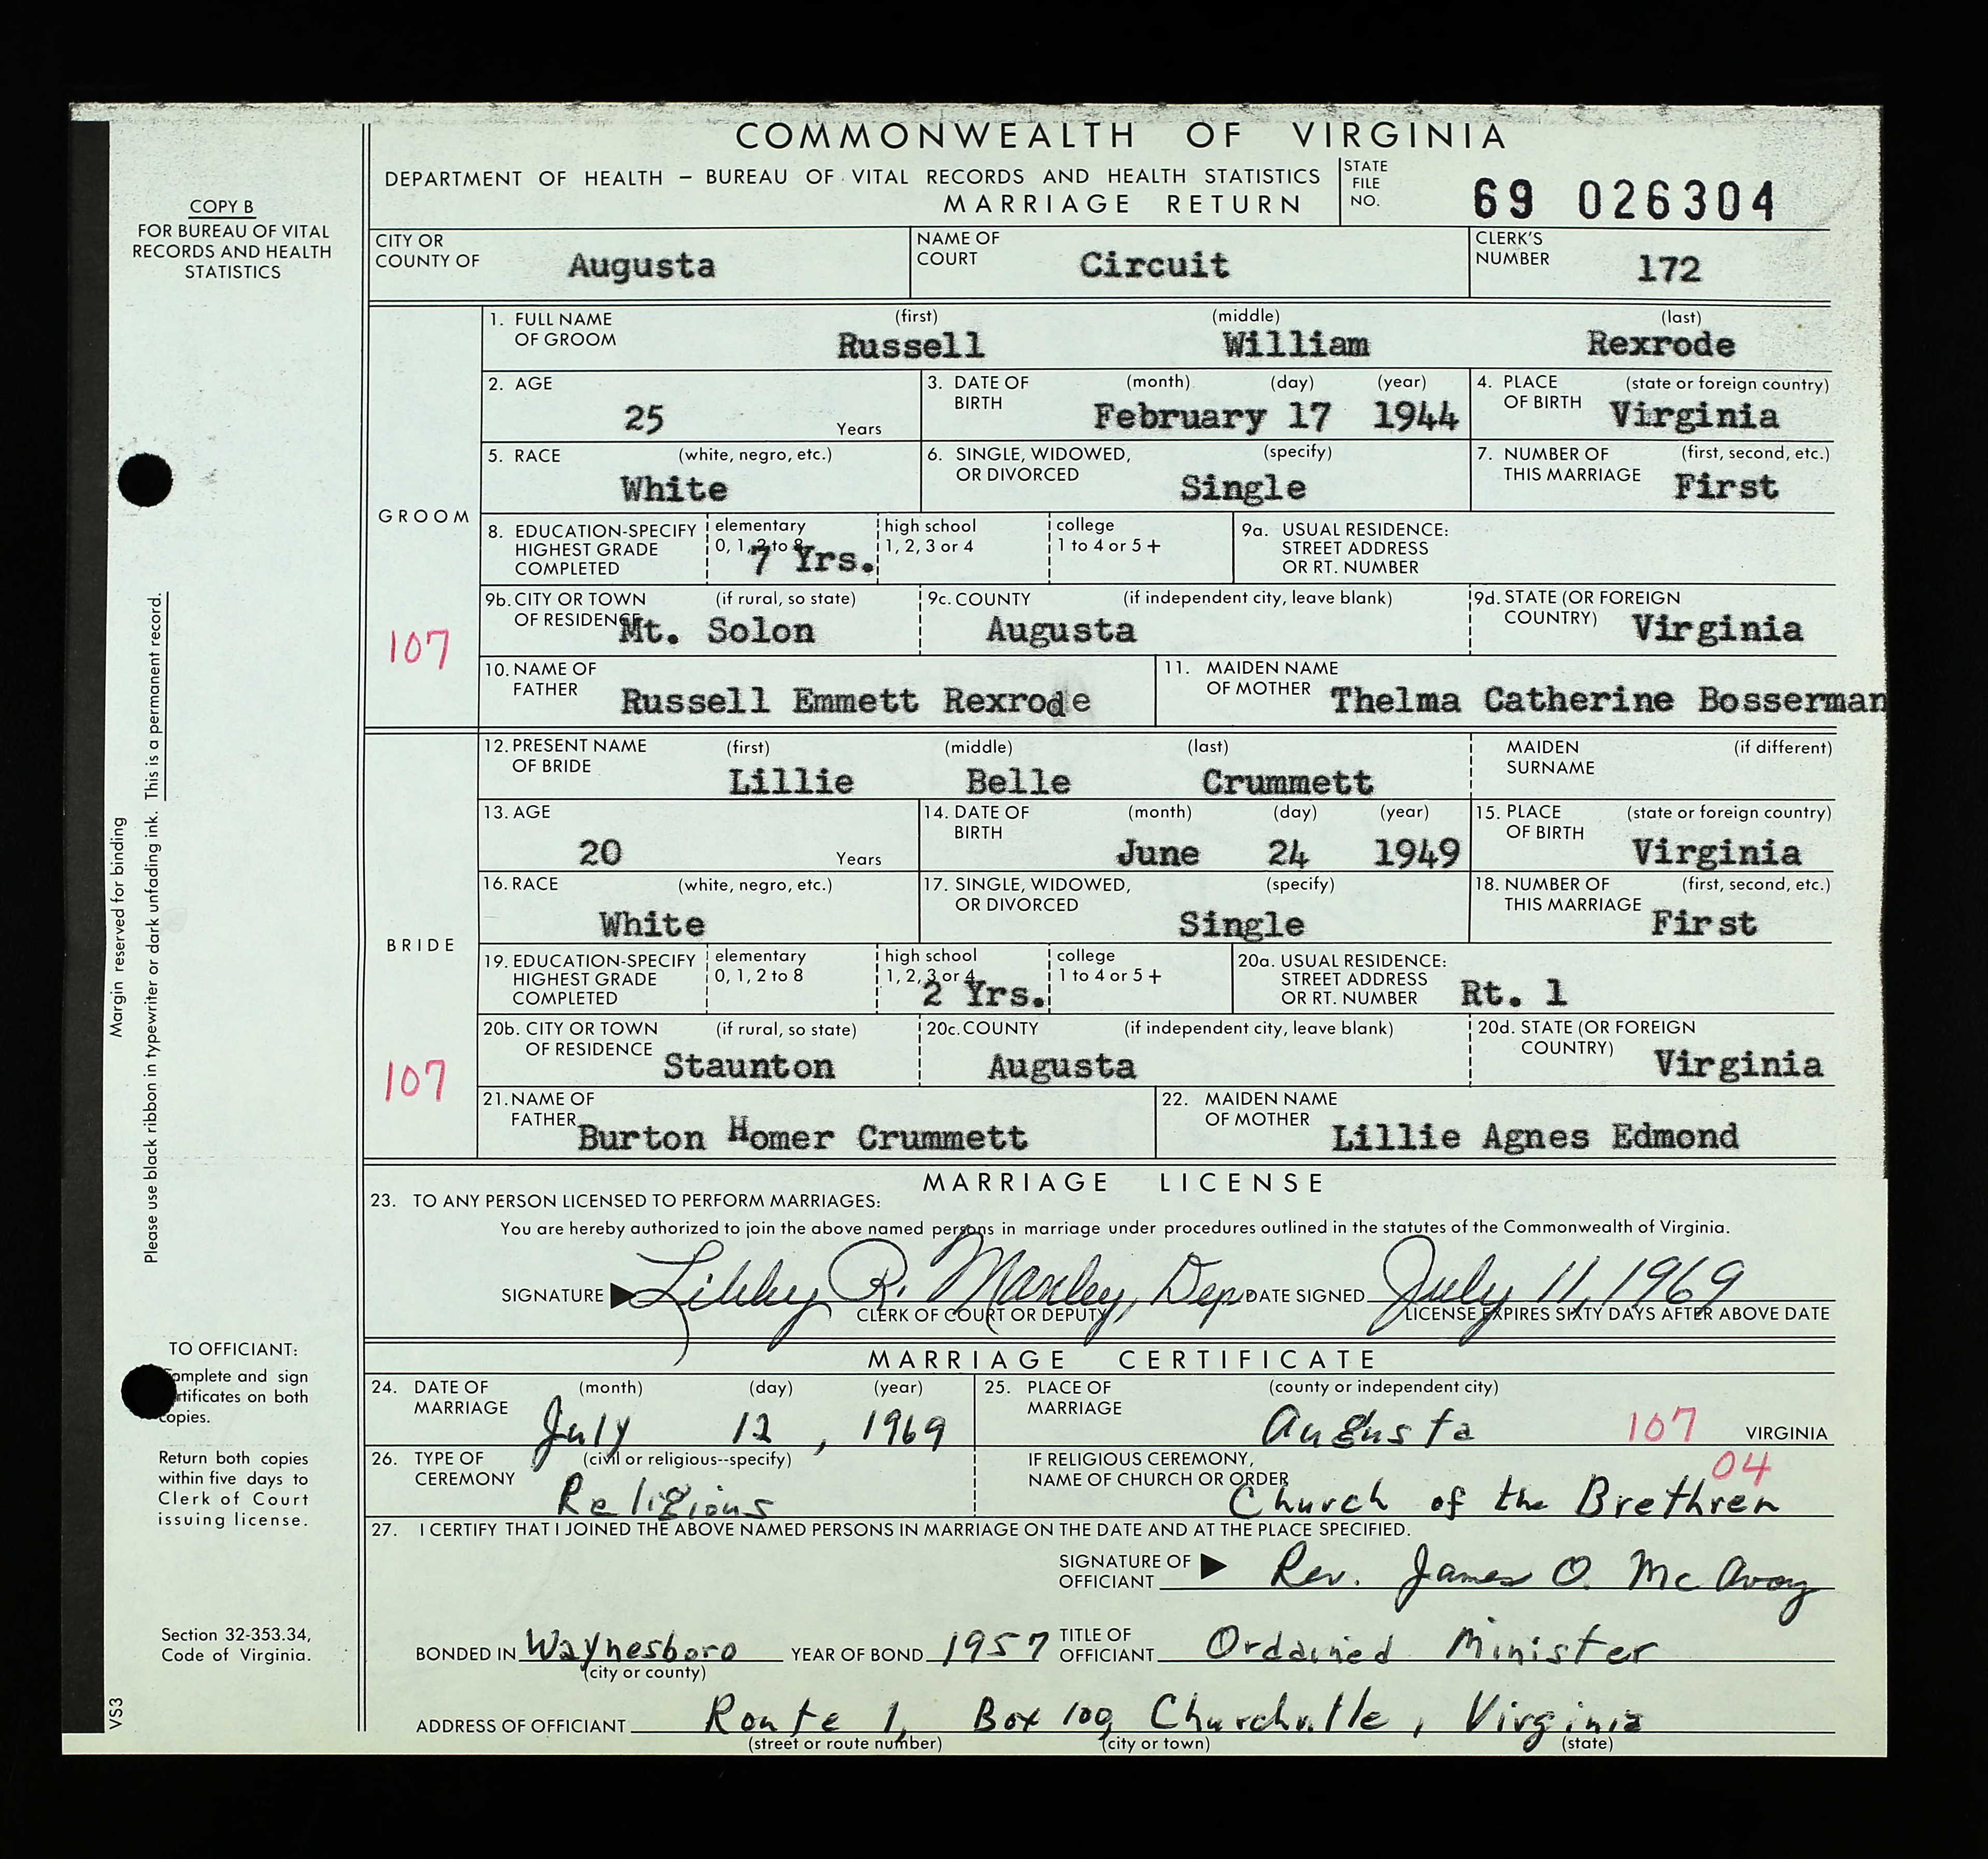 COMMONWEALTH OF VIRGINIA
DEPARTMENT OF HEALTH – BUREAU OF VITAL RECORDS AND HEALTH STATISTICS
MARRIAGE RETURN
STATE FILE NO. 69 026304
COPY B
FOR BUREAU OF VITAL
RECORDS AND HEALTH
STATISTICS
CITY OR COUNTY OF Augusta NAME OF COURT Circuit CLERK'S NUMBER 172
GROOM
107
1. FULL NAME OF GROOM (first) Russell (middle) William (last) Rexrode
2. AGE 25 Years 3. DATE OF BIRTH (month) (day) (year) February 17 1944 4. PLACE OF BIRTH (state or foreign country) Virginia
5. RACE (white, negro, etc.) White 6. SINGLE, WIDOWED, OR DIVORCED (specify) Single 7. NUMBER OF THIS MARRIAGE (first, second, etc.) First
8. EDUCATION-SPECIFY HIGHEST GRADE COMPLETED elementary 0, 1, 2 to 8 7 Yrs. high school 1, 2, 3 or 4 college 1 to 4 or 5+ 9a. USUAL RESIDENCE: STREET ADDRESS OR RT. NUMBER
9b. CITY OR TOWN OF RESIDENCE (if rural, so state) Mt. Solon 9c. COUNTY (if independent city, leave blank) Augusta 9d. STATE (OR FOREIGN COUNTRY) Virginia
10. NAME OF FATHER Russell Emmett Rexrode 11. MAIDEN NAME OF MOTHER Thelma Catherine Bosserman
BRIDE
107
12. PRESENT NAME OF BRIDE (first) Lillie (middle) Belle (last) Crummett MAIDEN SURNAME (if different)
13. AGE 20 Years 14. DATE OF BIRTH (month) (day) (year) June 24 1949 15. PLACE OF BIRTH (state or foreign country) Virginia
16. RACE (white, negro, etc.) White 17. SINGLE, WIDOWED, OR DIVORCED (specify) Single 18. NUMBER OF THIS MARRIAGE (first, second, etc.) First
19. EDUCATION-SPECIFY HIGHEST GRADE COMPLETED elementary 0, 1, 2 to 8 high school 1, 2, 3 or 4 2 Yrs. college 1 to 4 or 5+ 20a. USUAL RESIDENCE: STREET ADDRESS OR RT. NUMBER Rt. 1
20b. CITY OR TOWN OF RESIDENCE (if rural, so state) Staunton 20c. COUNTY (if independent city, leave blank) Augusta 20d. STATE (OR FOREIGN COUNTRY) Virginia
21. NAME OF FATHER Burton Homer Crummett 22. MAIDEN NAME OF MOTHER Lillie Agnes Edmond
MARRIAGE LICENSE
23. TO ANY PERSON LICENSED TO PERFORM MARRIAGES:
You are hereby authorized to join the above named persons in marriage under procedures outlined in the statutes of the Commonwealth of Virginia.
SIGNATURE Libby R. Manley, Dep. DATE SIGNED July 11, 1969
CLERK OF COURT OR DEPUTY LICENSE EXPIRES SIXTY DAYS AFTER ABOVE DATE
MARRIAGE CERTIFICATE
24. DATE OF MARRIAGE (month) (day) (year) July 12, 1969 25. PLACE OF MARRIAGE (county or independent city) Augusta 107 VIRGINIA
26. TYPE OF CEREMONY (civil or religious--specify) Religious IF RELIGIOUS CEREMONY, NAME OF CHURCH OR ORDER 04 Church of the Brethren
27. I CERTIFY THAT I JOINED THE ABOVE NAMED PERSONS IN MARRIAGE ON THE DATE AND AT THE PLACE SPECIFIED.
SIGNATURE OF OFFICIANT Rev. James O. McAvoy
BONDED IN Waynesboro (city or county) YEAR OF BOND 1957 TITLE OF OFFICIANT Ordained Minister
ADDRESS OF OFFICIANT Route 1, Box 100, Churchville, Virginia
(street or route number) (city or town) (state)
Margin reserved for binding
Please use black ribbon in typewriter or dark unfading ink. This is a permanent record.
TO OFFICIANT:
Complete and sign
certificates on both
copies.
Return both copies
within five days to
Clerk of Court
issuing license.
Section 32-353.34,
Code of Virginia.
VS3